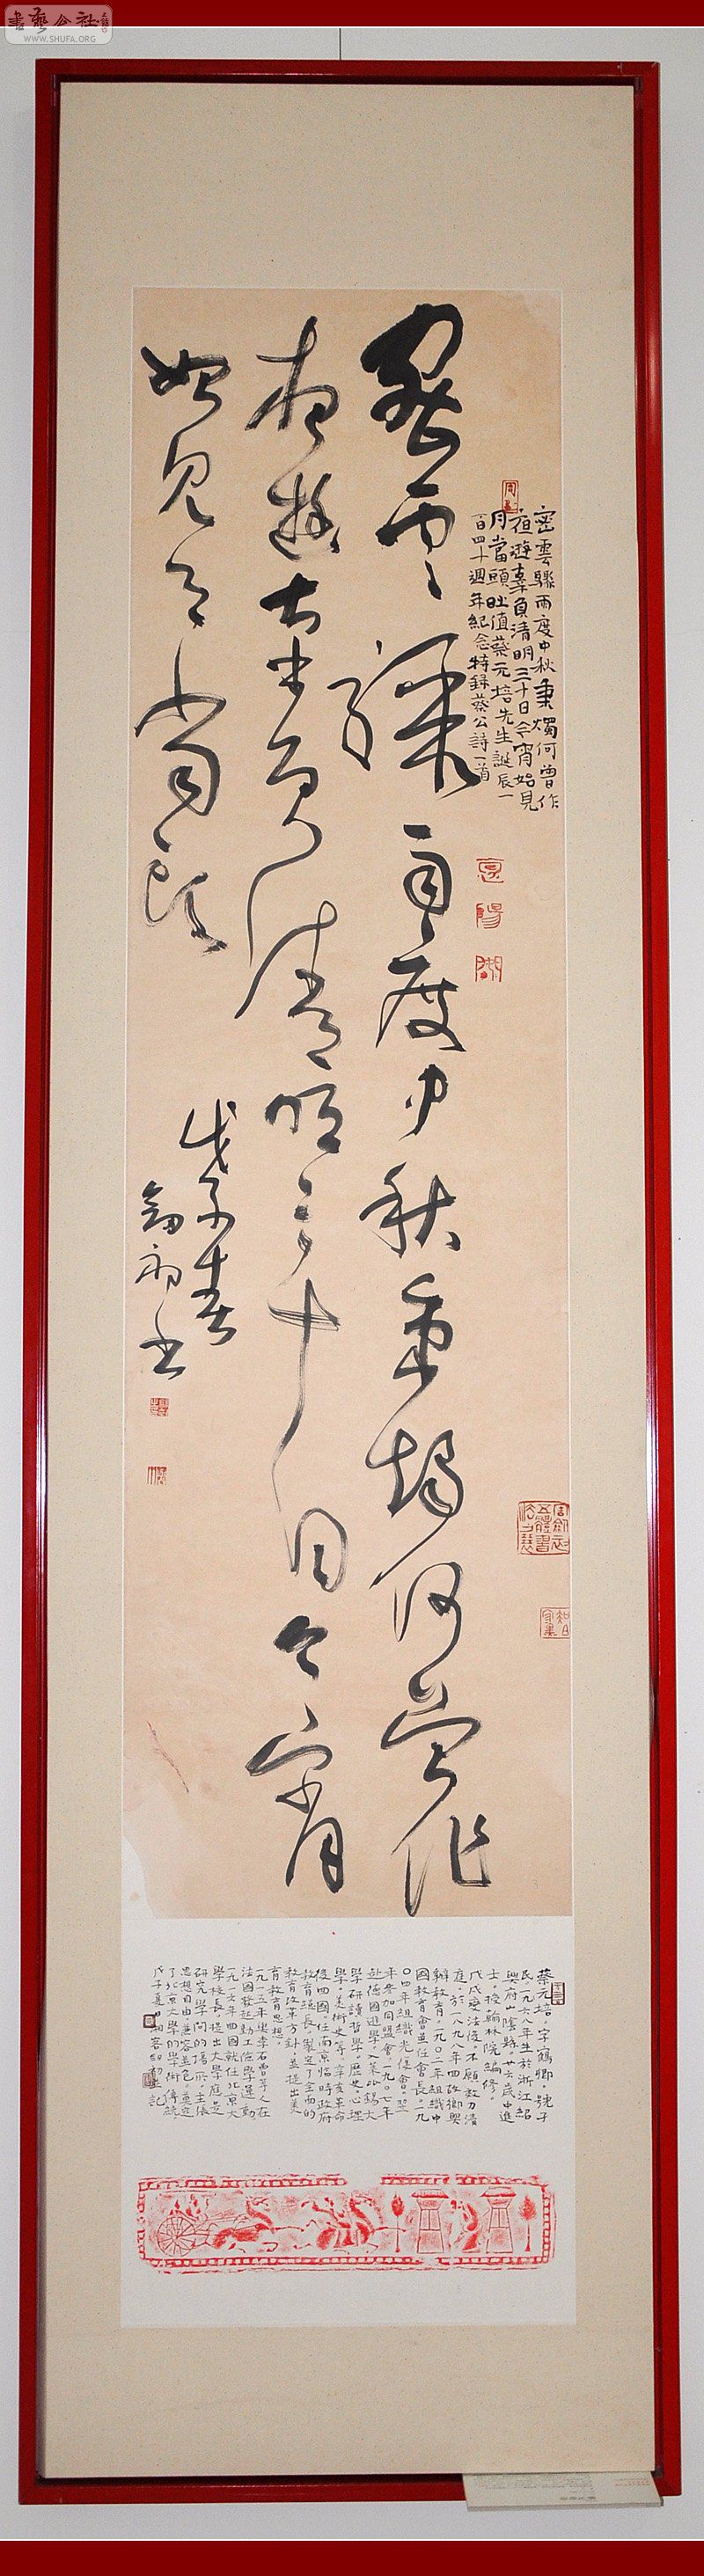 書藝公社
WWW.SHUFA.ORG
密雲驟雨度中秋秉燭何曾作
夜遊辜負清明三十日今宵
始見月當頭
戊子春
劍初書
密雲驟雨度中秋秉燭何曾作
夜遊辜負清明三十日今宵始見
月當頭 值蔡元培先生誕辰一
百四十週年紀念特錄蔡公詩一首
蔡元培字鶴卿號孑
民一八六八年生於浙江紹
興府山陰縣廿六歲中進
士授翰林院編修
戊戌變法後不願效力清
庭於一八九八年回故鄉興
辦教育一九〇二年組織中
國教育會並任會長一九
〇四年組織光復會翌
年參加同盟會一九〇七年
赴德國遊學入萊比錫大
學研讀哲學歷史心理
學美術史等辛亥革命
後回國任南京臨時政府
教育總長製定了全面的
教育改革方針並提出美
育教育思想
一九一五年與李石曾等人在
法國發起勤工儉學運動
一九一六年回國就任北京大
學校長提出大學應是
研究學問的場所主張
思想自由兼容並包奠定
了北京大學的學術傳統
戊子夏 記